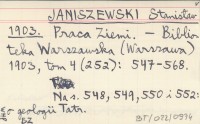 JANISZEWSKI Stanisław
1903. Praca Ziemi. - Biblio-
teka Warszawska (Warszawa)
1903, tom 4 (252): 547-568.
Na s. 548, 549, 550 i 552:
o geologii Tatr.
BT/072/0974